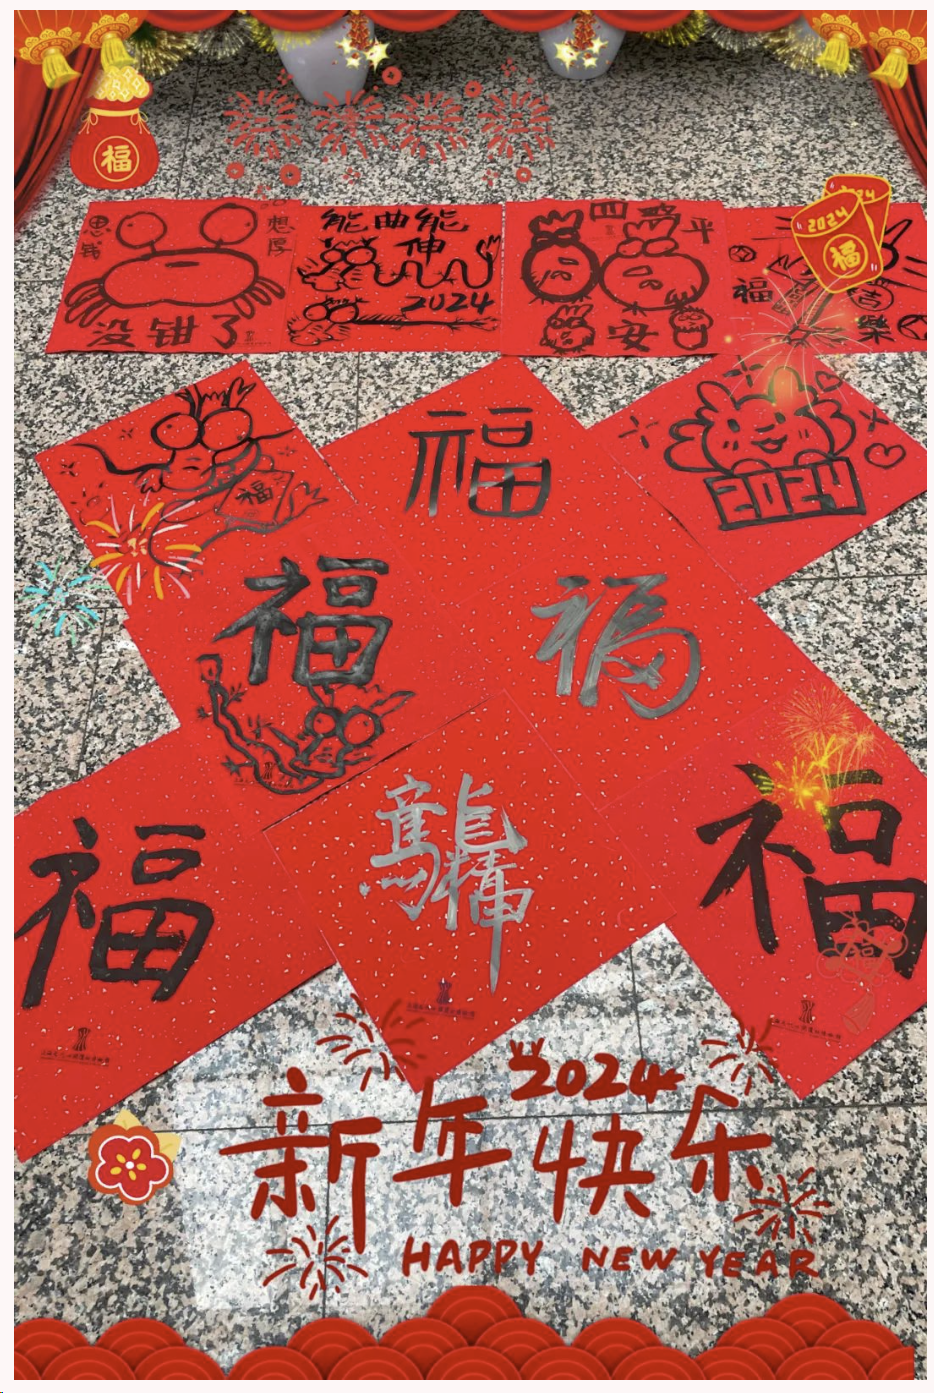 福
2024
福
思钱
想厚
没钳了
能曲能
伸
2024
四
平
安
福
吉
樂
福
福
2024
福
福
福
福
2024
新年快乐
HAPPY NEW YEAR